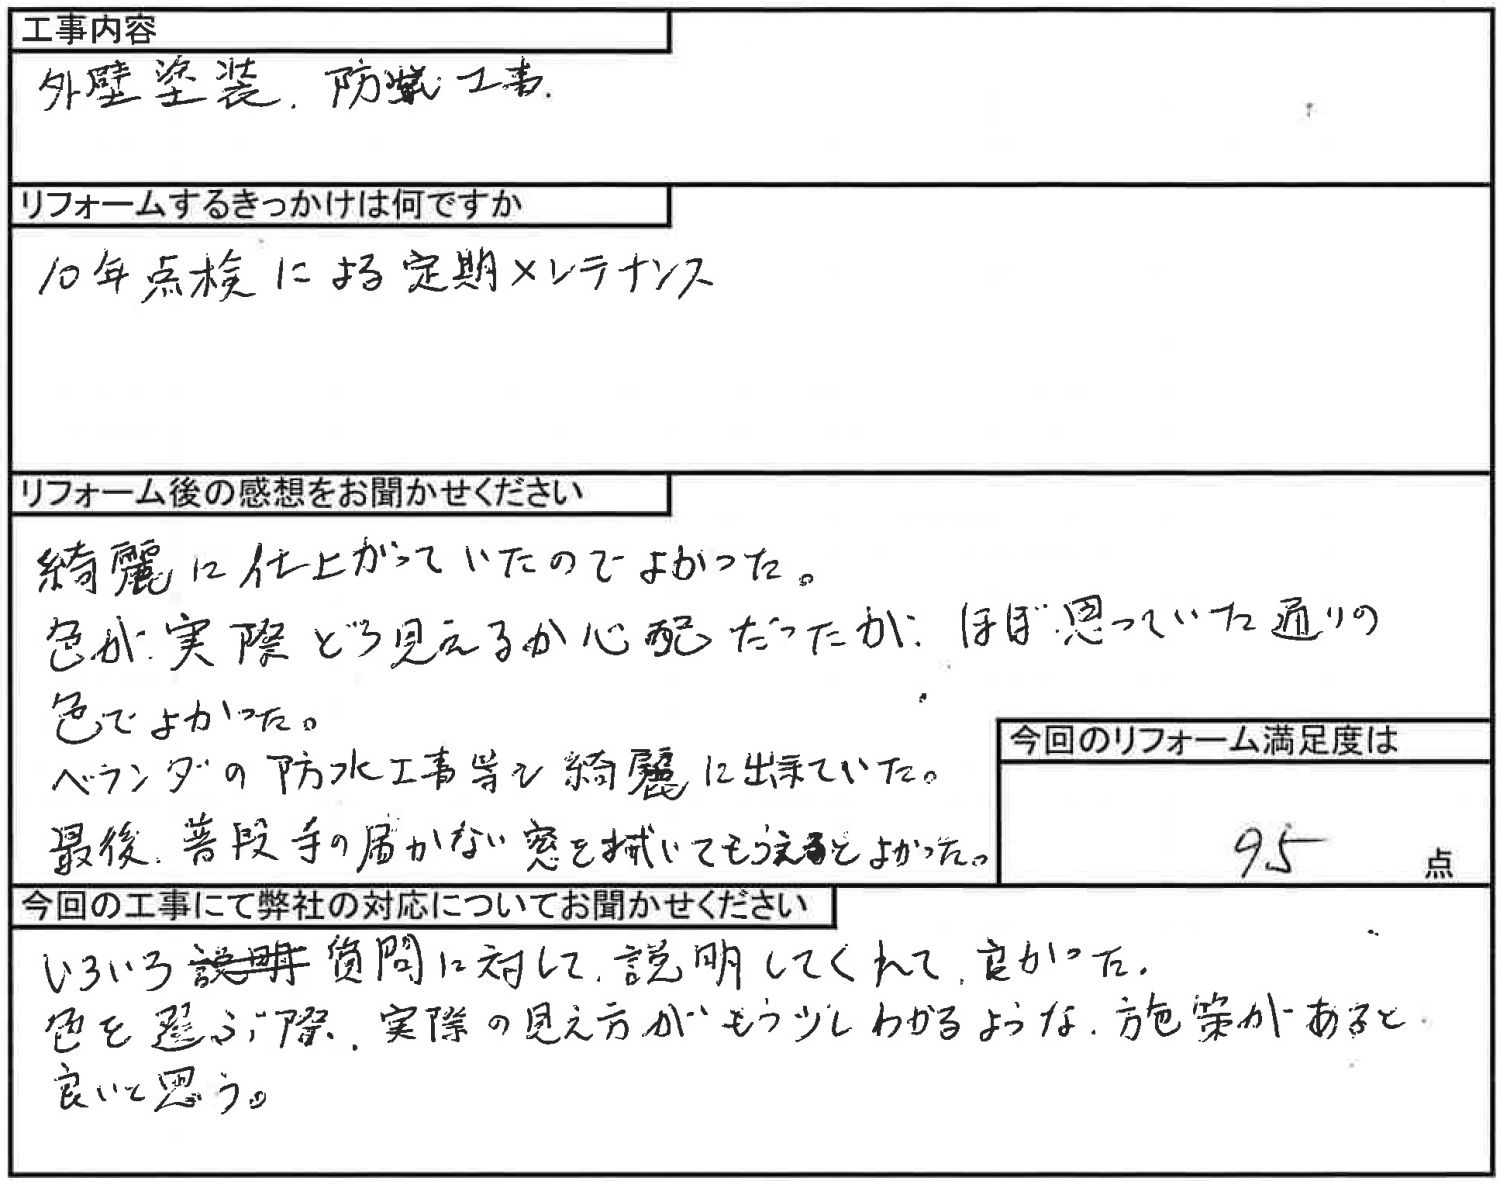 工事内容
外壁塗装、防蟻工事.
リフォームするきっかけは何ですか
10年点検による定期メンテナンス
リフォーム後の感想をお聞かせください
綺麗に仕上がっていたのでよかった。
色が実際どう見えるか心配だったが、ほぼ思っていた通りの
色でよかった。
ベランダの防水工事等も綺麗に出来ていた。
最後、普段手の届かない窓を拭いてもらえるとよかった。
今回のリフォーム満足度は
95 点
今回の工事にて弊社の対応についてお聞かせください
いろいろ説明質問に対して、説明してくれて、良かった.
色を選ぶ際、実際の見え方がもう少しわかるような、施策があると
良いと思う。